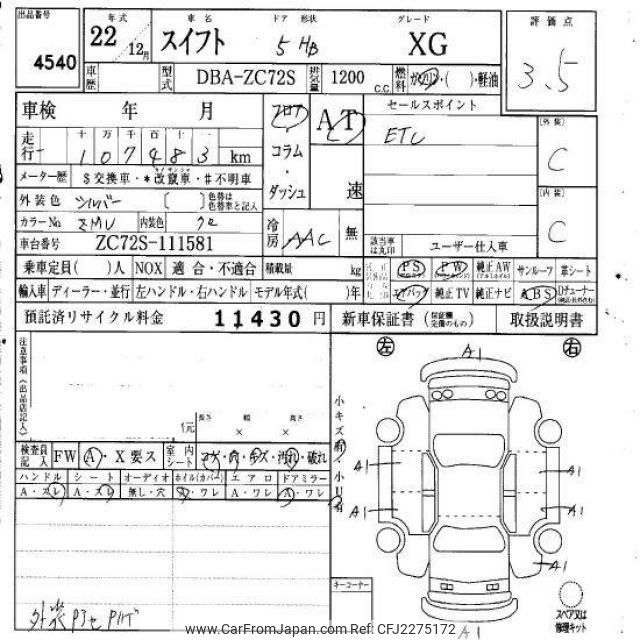 出品番号
4540
年式
22 12月
車名
スイフト
ドア 形状
5 HB
グレード
XG
評価点
3.5
車歴
型式
DBA-ZC72S
排気量
1200 C.C.
燃料
ガソリン・( )・軽油
車検 年 月
フロア
コラム
・
ダッシュ
AT
速
セールスポイント
ETC
(外装)
C
(内装)
C
走行
十 万 千 百 十 一
1 0 7 9 8 3 km
メーター歴
$交換車・*改竄車・#不明車
外装色
シルバー
( )
色替は色替車と記入
カラーNo
ZMU
内装色
クロ
冷房
AAC
無
車台番号
ZC72S-111581
該当車は丸印
ユーザー仕入車
乗車定員( )人
NOX
適合・不適合
積載量 kg
PS
PW
純正AW
サンルーフ
革シート
輸入車
ディーラー・並行
左ハンドル・右ハンドル
モデル年式( )年
エアバッグ
純正TV
純正ナビ
ABS
預託済リサイクル料金
11430 円
新車保証書
取扱説明書
注意事項(出品店記入)
長さ 幅 高さ
× ×
検査員記入
FW
A・X要ス
室内シート
コゲ・穴・キズ・汚れ・破れ
ハンドル
シート
オーディオ
ホイル(カバー)
エアロ
ドアミラー
A・スレ
A・スレ
無し・穴
A・ワレ
A・ワレ
A・ワレ
左
右
A1
A1
A1
A1
A1
A1
A1
キーコーナー
スペア又は
修理キット
www.CarFromJapan.com Ref: CFJ2275172